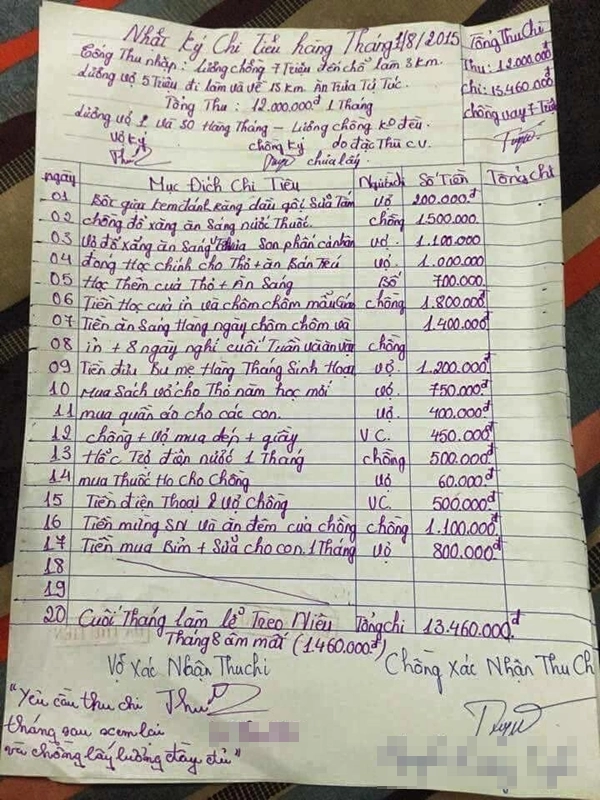 Nhật Ký Chi Tiêu hàng Tháng 1/8/2015
Tổng Thu Chi
Tổng Thu nhập: Lương chồng 7 Triệu đến chỗ làm 3 km.
Thu: 12.000.000đ
Lương vợ 5 Triệu đi làm và về 15 km. Ăn Trưa Tự Túc.
chi: 13.460.000đ
Tổng Thu: 12.000.000đ 1 Tháng
chồng vay 7 Triệu
Lương vợ 2 và 30 Hàng Tháng - Lương chồng ko đều.
Vợ Ký chồng Ký do đặc Thù C.V.
chưa lấy.
ngày Mục Đích Chi Tiêu Số Tiền Tổng chi
01 Bột giặt kem đánh Răng dầu gội Sữa Tắm Vợ 200.000.đ
02 chồng đổ xăng ăn Sáng nước Thuốc. chồng 1.500.000
03 Vợ đổ xăng ăn Sáng Son phấn cá nhân vợ. 1.100.000
04 đóng Học chính cho Thỏ + ăn Bán Trú vợ. 1.000.000
05 Học Thêm của Thỏ + Ăn Sáng Bố 700.000
06 Tiền Học của in và chôm chôm mẫu Giáo chồng 1.800.000
07 Tiền ăn Sáng Hàng ngày chôm chôm và 1.400.000đ
08 in + 8 ngày nghỉ cuối Tuần và ăn vặt chồng
09 Tiền đưa Bu mẹ Hàng Tháng Sinh Hoạt vợ. 1.200.000đ
10 Mua Sách vở cho Thỏ năm học mới vợ. 750.000đ
11 mua quần áo cho các con. Vợ. 400.000đ
12 chồng + Vợ mua dép + giầy V.C. 450.000đ
13 điện nước 1 Tháng chồng 500.000đ
14 mua Thuốc Ho cho Chồng Vợ 60.000.đ
15 Tiền điện Thoại 2 Vợ chồng VC. 500.000đ
16 Tiền mừng SN và ăn đêm của chồng chồng 1.100.000đ
17 Tiền mua Bỉm + Sữa cho con. 1 Tháng Vợ 800.000đ
18
19
20 Cuối Tháng làm lễ Treo Niêu Tổng chi 13.460.000.đ
Tháng 8 âm mất (1.460.000.đ)
Vợ Xác Nhận Thu chi Chồng Xác Nhận Thu Ch
"Yêu cầu thu chi
tháng sau xem lại
và chồng lấy lương đầy đủ"